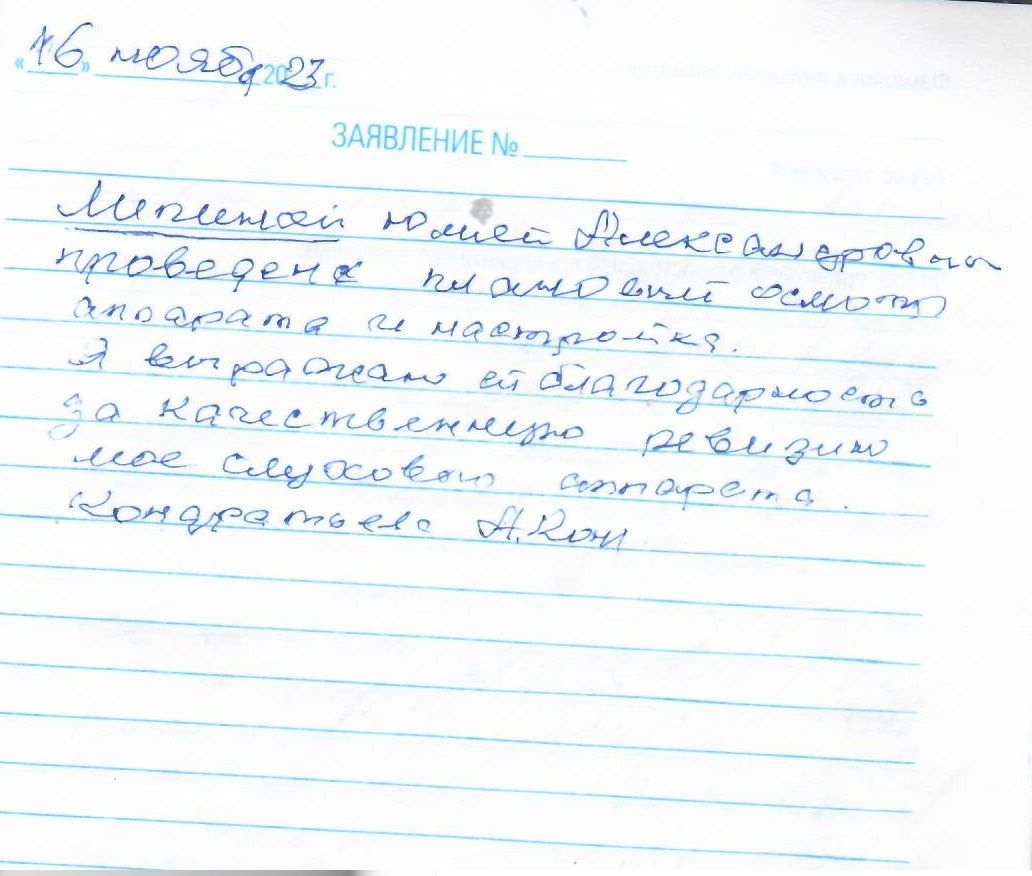 «16» ноября 2023 г.
ЗАЯВЛЕНИЕ №
Юлией Александровной
проведена плановый осмотр
аппарата и настройка.
Я выражаю ей благодарность
за качественную ревизию
мое слухового аппарата.
Кондратьева А.Кон